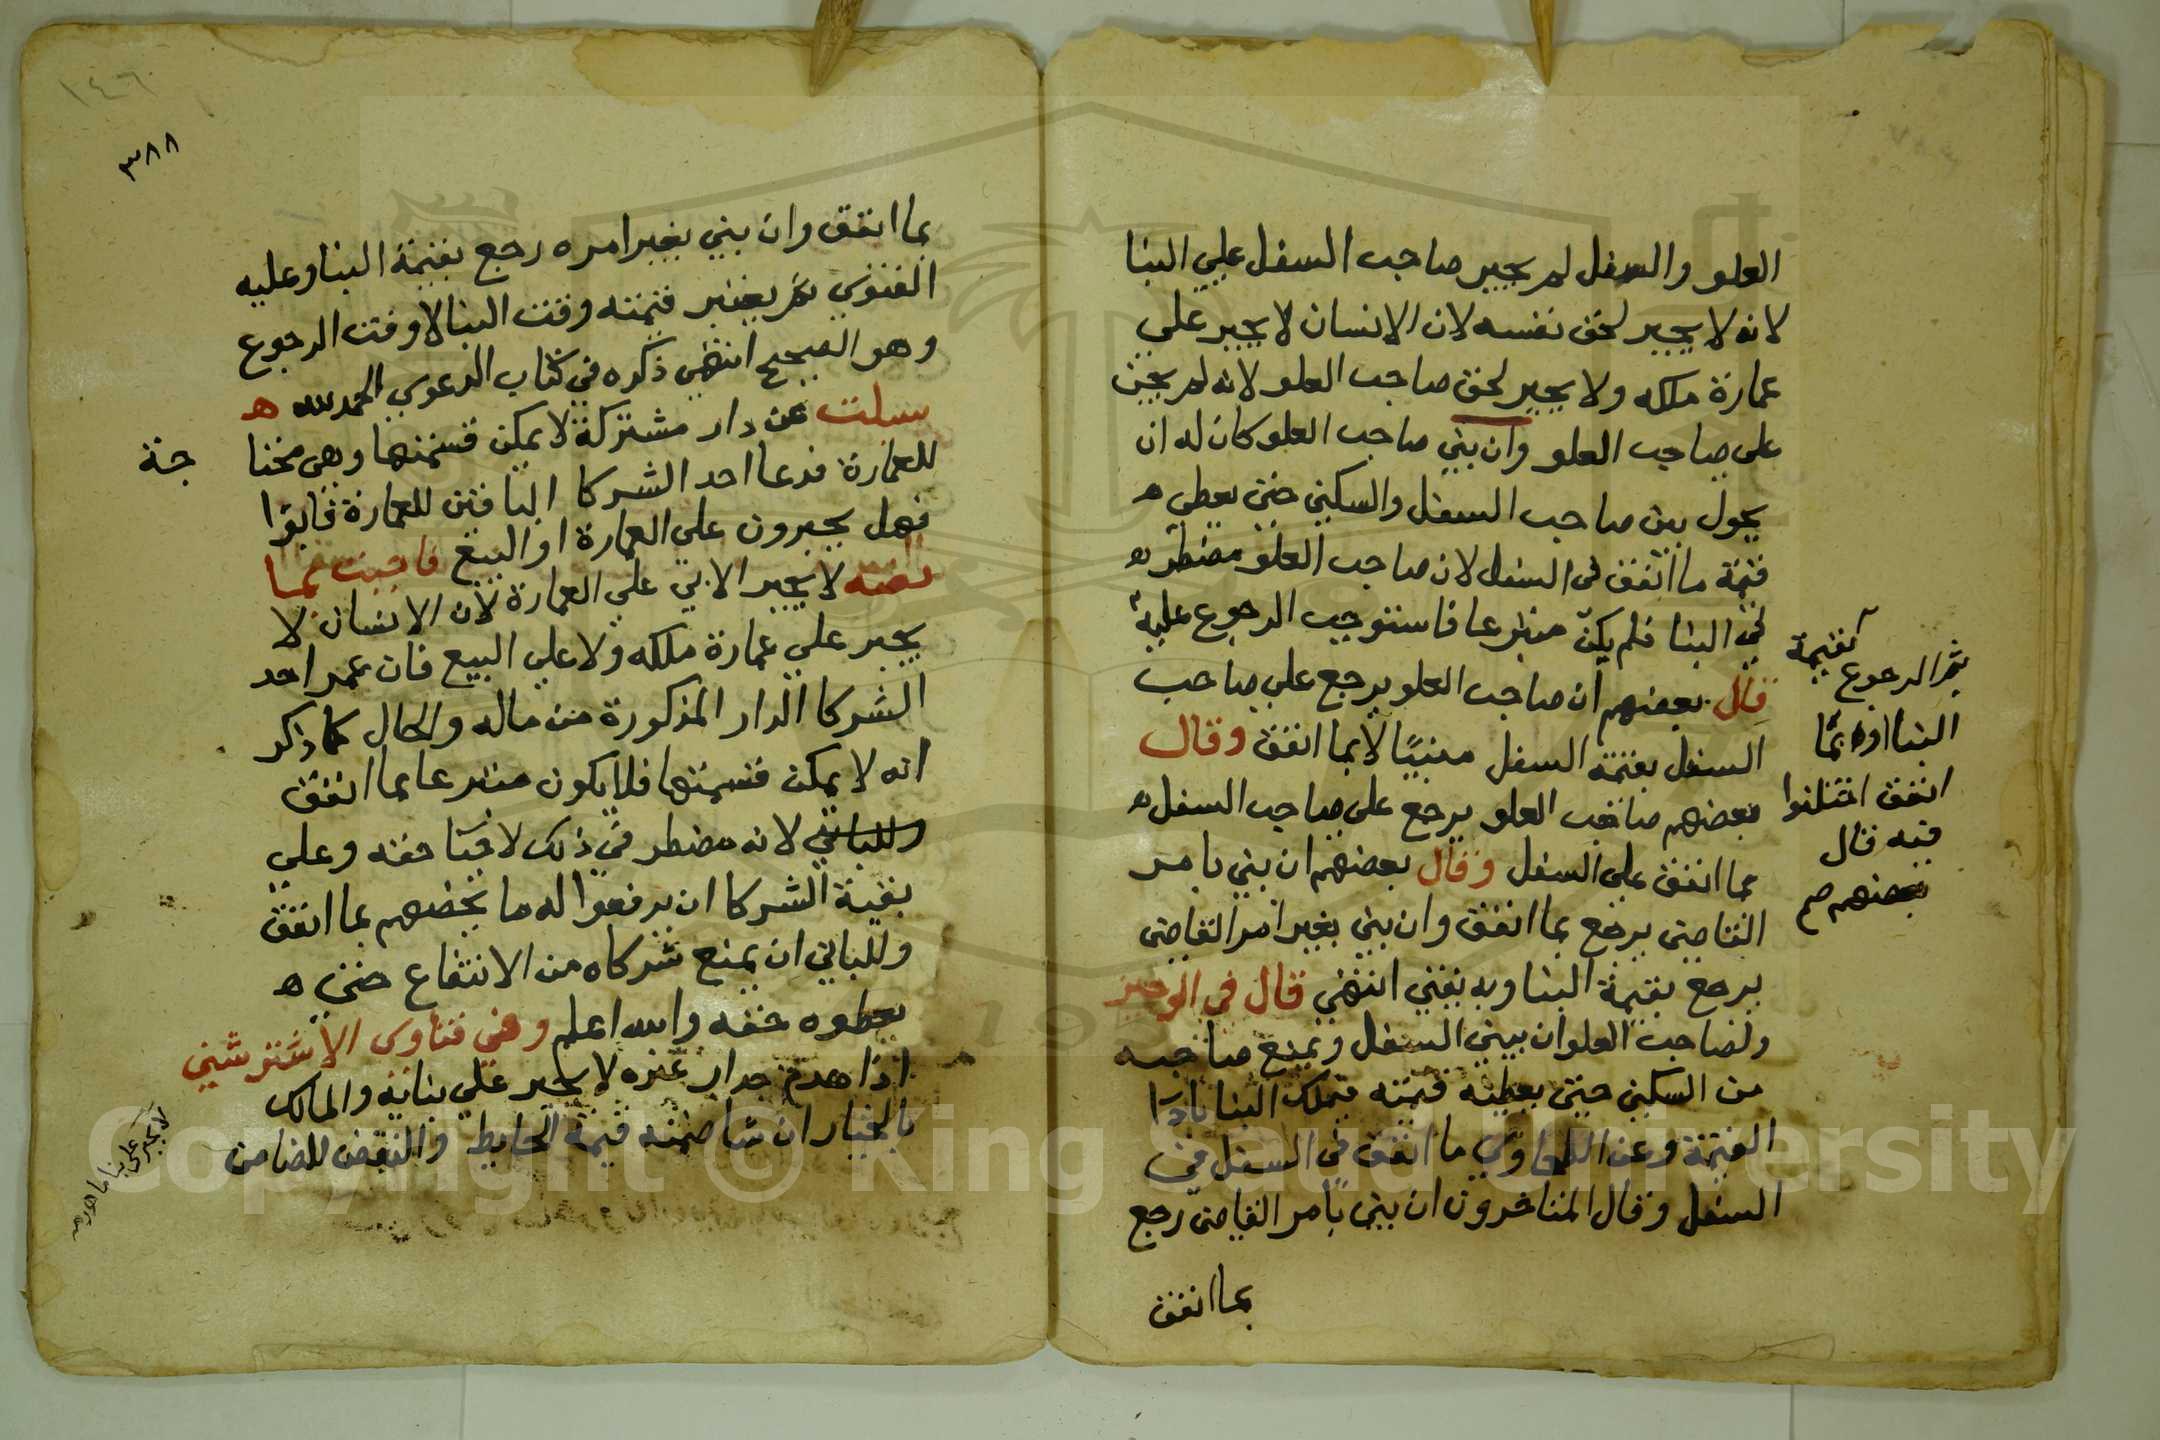 العلو والسفل لم يجبر صاحب السفل علي البنا
لانه لا يجبر لحق نفسه لان الانسان لا يجبر علي
عمارة ملكه ولا يجبر لحق صاحب العلو لانه لم يجن
علي صاحب العلو وان بني صاحب العلو كان له ان
يحول بين صاحب السفل والسكني حتي يعطي ه
قيمة ما انفق في السفل لان صاحب العلو مضطر ه
في البنا فلم يكن متبرعا فاستوجب الرجوع عليه
قال بعضهم ان صاحب العلو يرجع علي صاحب
السفل بقيمة السفل مبنيًا لا بما انفق وقال
بعضهم صاحب العلو يرجع علي صاحب السفل ه
بما انفق علي السفل وقال بعضهم ان بني بامر
القاضي يرجع بما انفق وان بني بغير امر القاضي
يرجع بقيمة البنا وبه يفتي انتهي قال في الوجيز
ولصاحب العلو ان يبني السفل ويمنع صاحبه
من السكني حتي يعطيه قيمته فيملك البنا بادا
القيمة وعن الطحاوي ما انفق في السفل في
السفل وقال المتاخرون ان بني بامر القاضي رجع
بما انفق
ثم الرجوع بقيمة
البنا او بما
انفق اختلفوا
فيه قال
بعضهم صح
١٤٦٠
٣٨٨
بما انفق وان بني بغير امره رجع بقيمة البنا وعليه
الفتوي ثم يعتبر قيمته وقت البنا لا وقت الرجوع
وهو الصحيح انتهي ذكره في كتاب الدعوي الحمد لله ه
سيلت عن دار مشتركة لا يمكن قسمتها وهي محتا
جة
للعمارة فدعا احد الشركا الباقين للعمارة فابوا
فهل يجبرون علي العمارة او البيع فاجبت بما
نصه لا يجبر الابي علي العمارة لان الانسان لا
يجبر علي عمارة ملكه ولا علي البيع فان عمر احد
الشركا الدار المذكورة من ماله والحال كما ذكر
انه لا يمكن قسمتها فلا يكون متبرعا بما انفق
وللباني لانه مضطر في ذلك لاحيا حقه وعلي
بقية الشركا ان يدفعوا له ما يخصهم بما انفق
وللباني ان يمنع شركاه من الانتفاع حتي ه
يعطوه حقه والله اعلم وفي فتاوي الاشتروشني
اذا هدم جدار غيره لا يجبر علي بنايه والمالك
بالخيار ان شا ضمنه قيمة الحايط والنقض للضامن
لا يجبر علي بنا ما هدمه